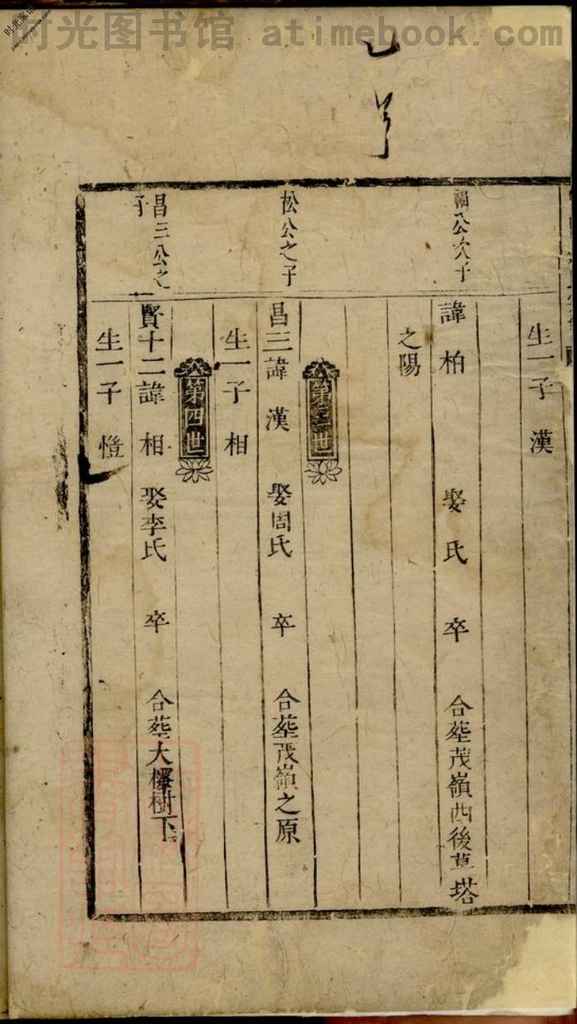 时光图书馆 atimebook.com
生一子漢
福公次子
諱柏 娶氏 卒 合塟茂嶺西後草塔
之陽
第三世
松公之子
昌三諱漢 娶周氏 卒 合塟茂嶺之原
生一子相
第四世
昌三公之子
賢十二諱相 娶李氏 卒 合塟大樹下
生一子憕